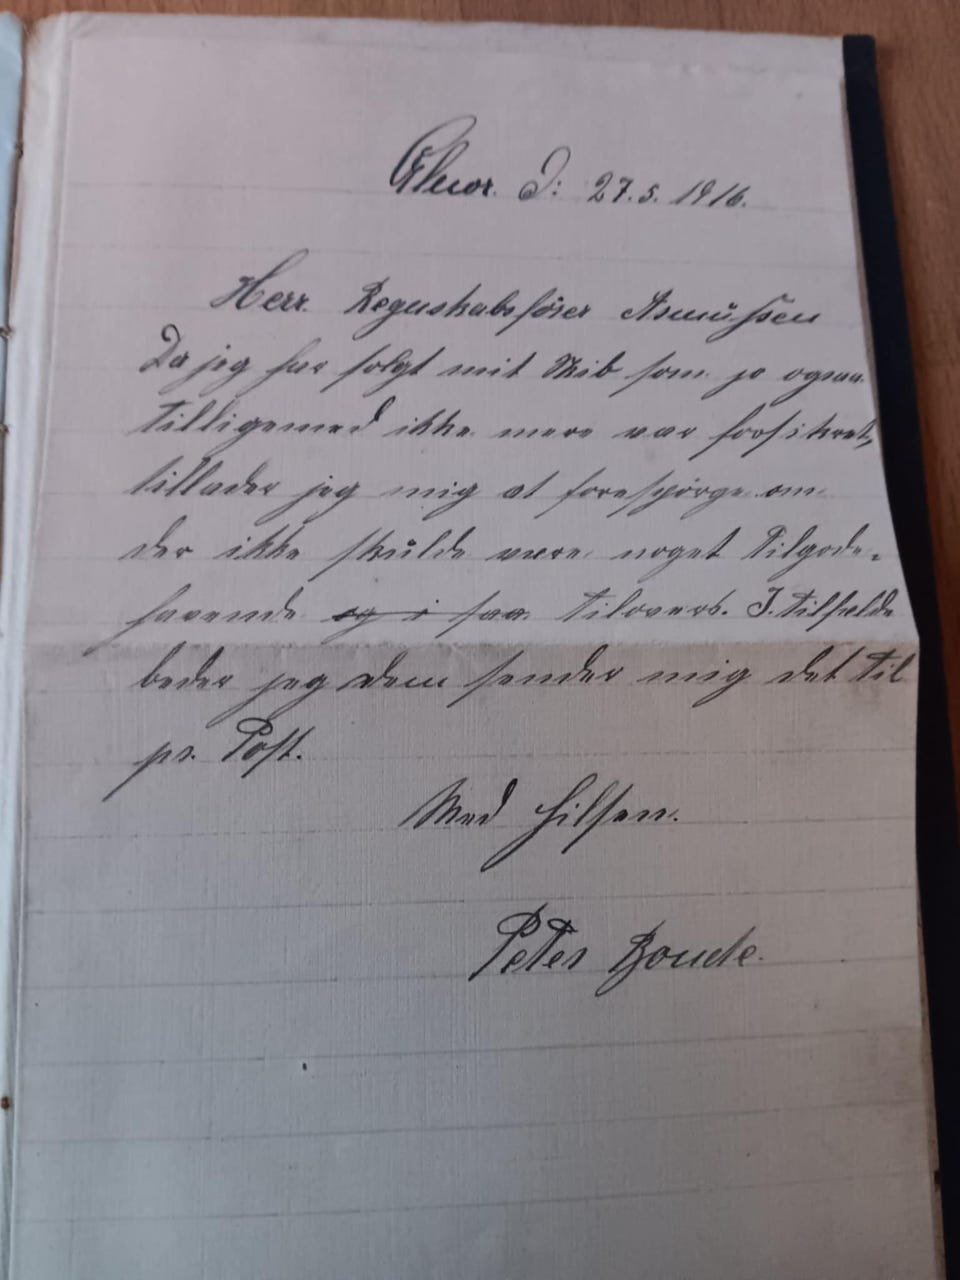 D: 27.5.1916.
Herr. Regnskabsförer Asmüssen
Da jeg har solgt mit Skib som jo ogsaa
tilligemed ikke mere var forsikret,
tillader jeg mig at forespörge om
der ikke skulde være noget Tilgode-
havende og i saa tilovers. I tilfælde
beder jeg dem sender mig det til
pr. Post.
Med Hilsen.
Peter